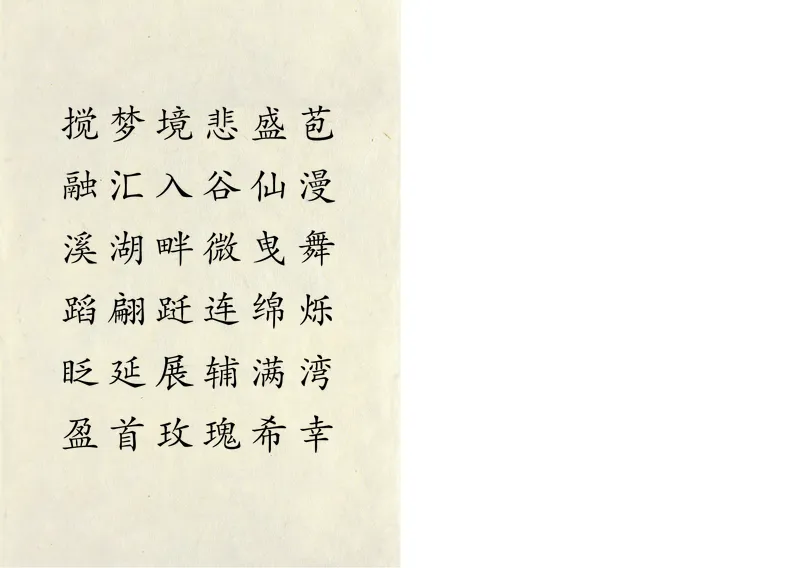 搅梦境悲盛苞
融汇入谷仙漫
溪湖畔微曳舞
蹈翩跹连绵烁
眨延展辅满湾
盈首玫瑰希幸